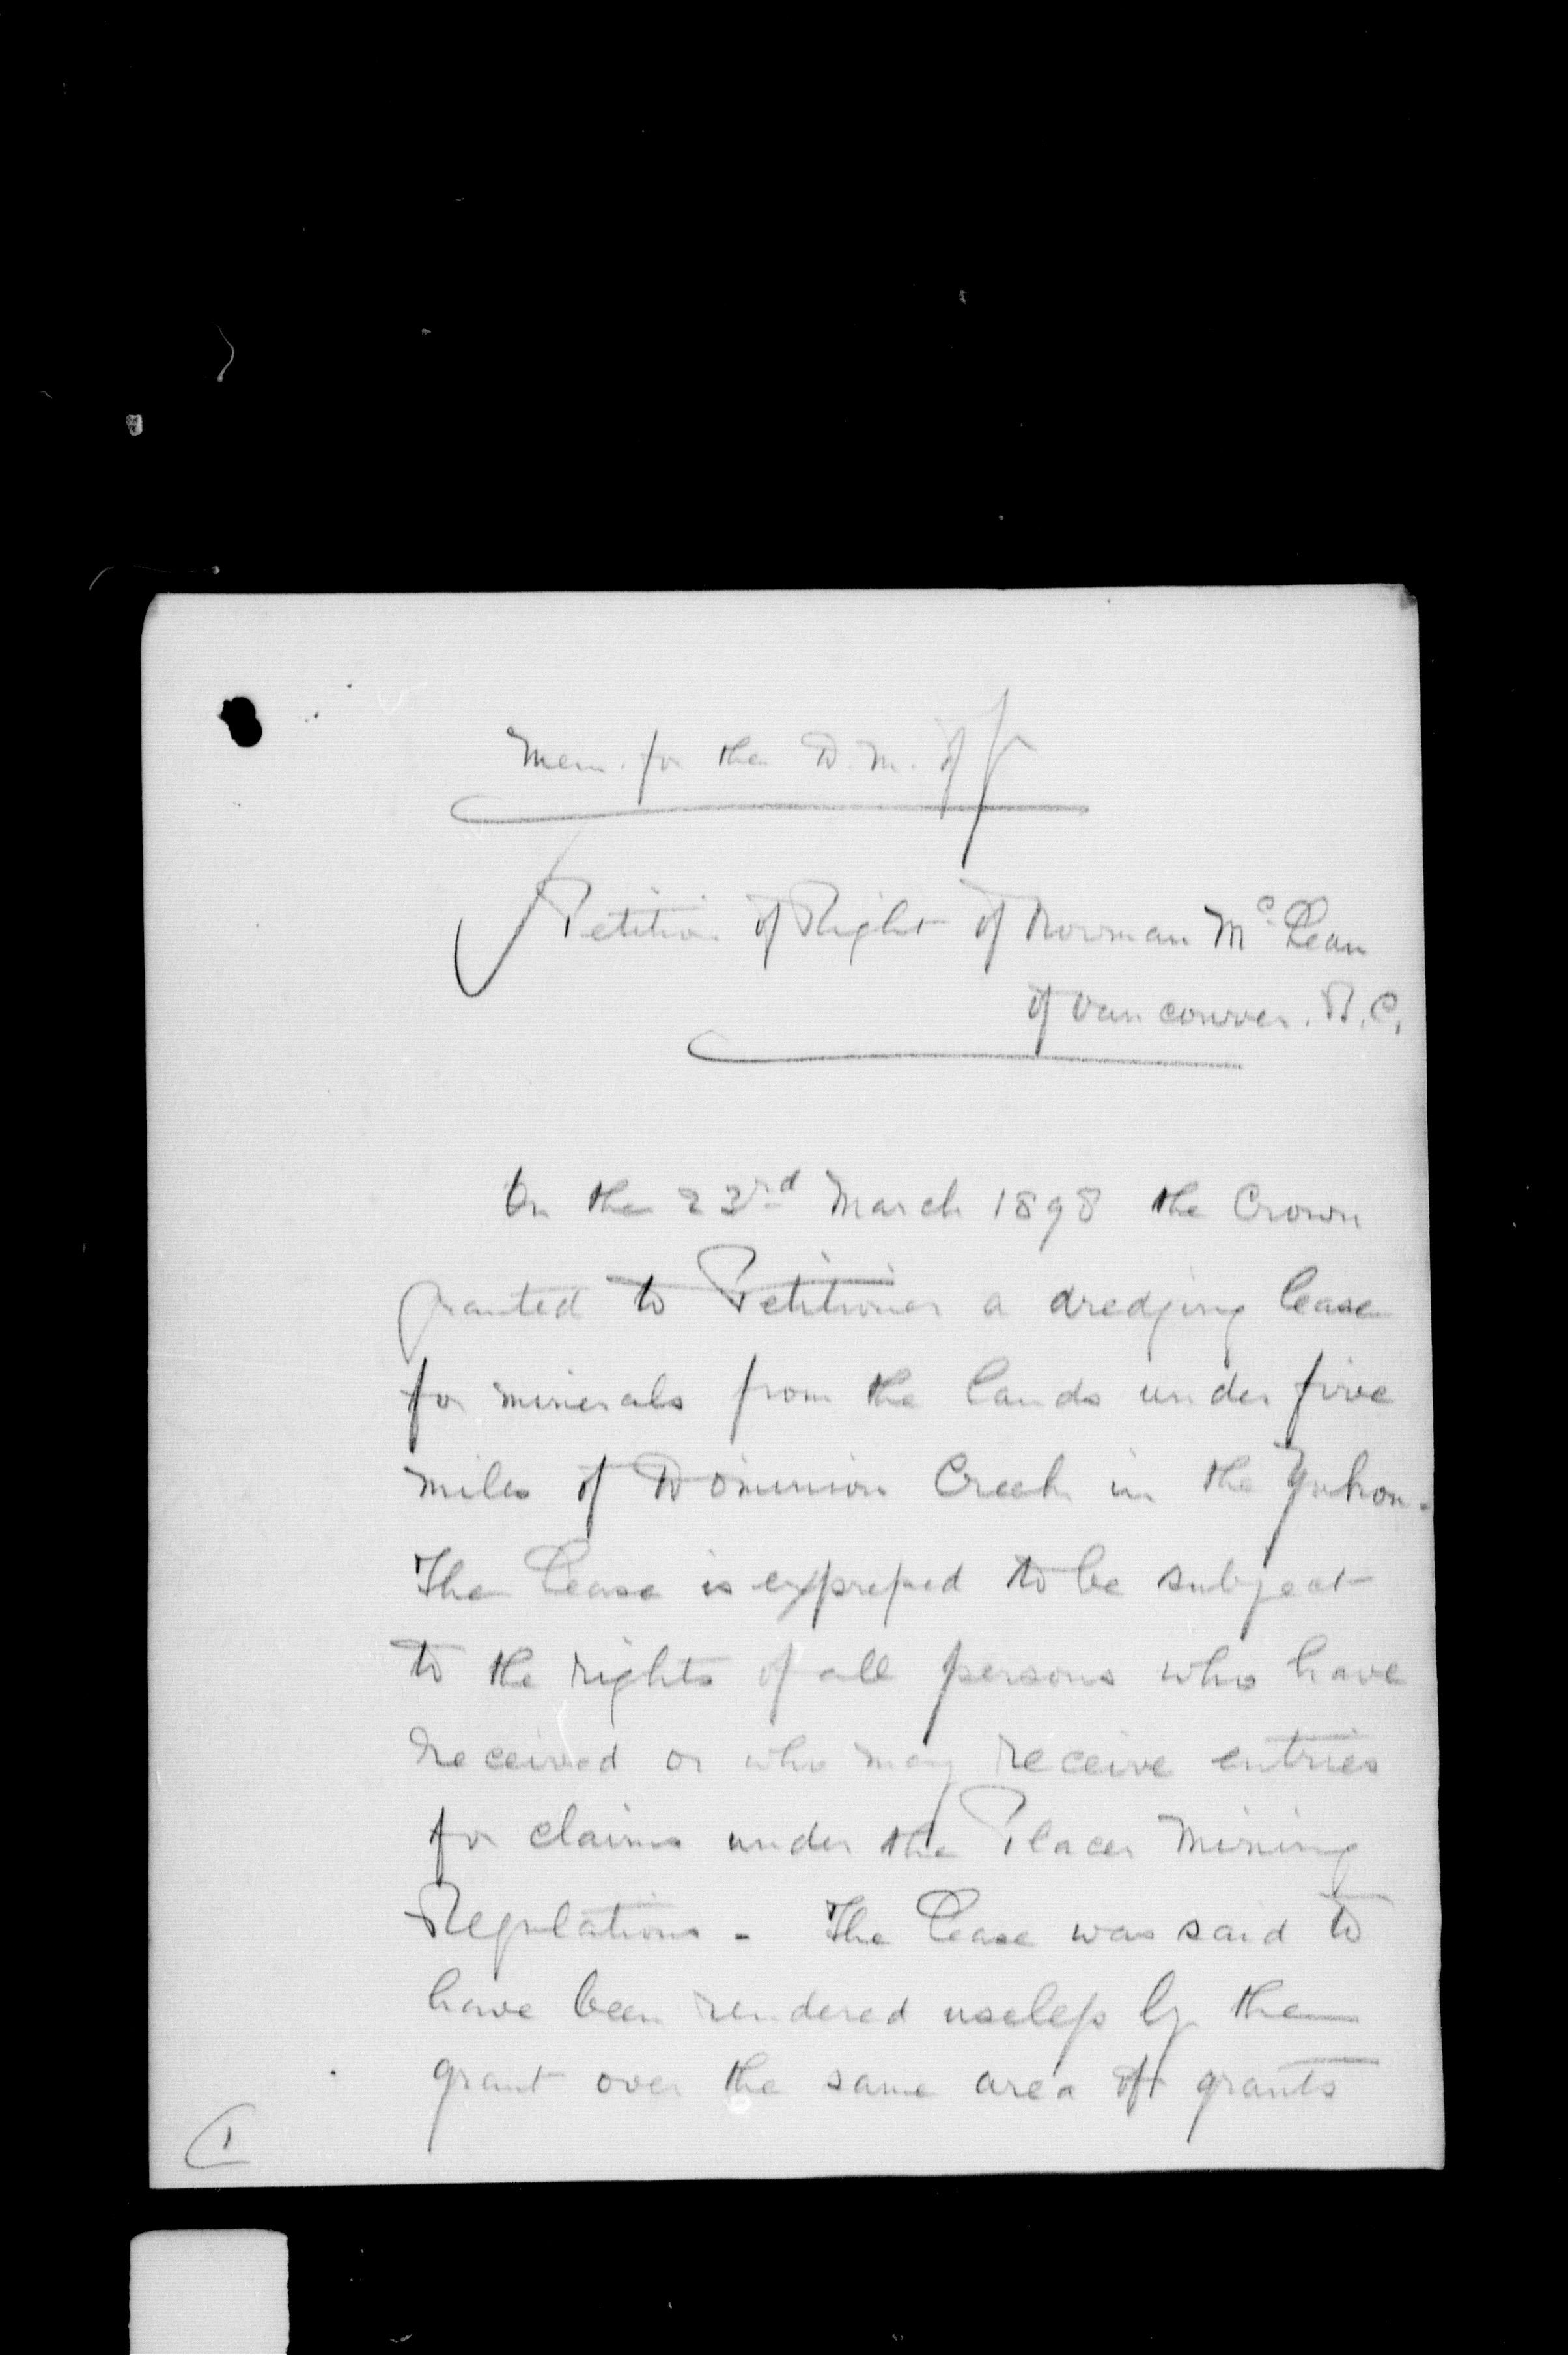 Mem. for the D. M. of J
Petition of Right of Norman McLean
of Vancouver. B.C.
On the 23rd March 1898 the Crown
granted to Petitioner a dredging lease
for minerals from the lands under five
miles of Dominion Creek in the Yukon.
The Lease is expressed to be subject
to the rights of all persons who have
received or who may receive entries
for claims under the Placer Mining
Regulations - The Lease was said to
have been rendered useless by the
grant over the same area of grants
1